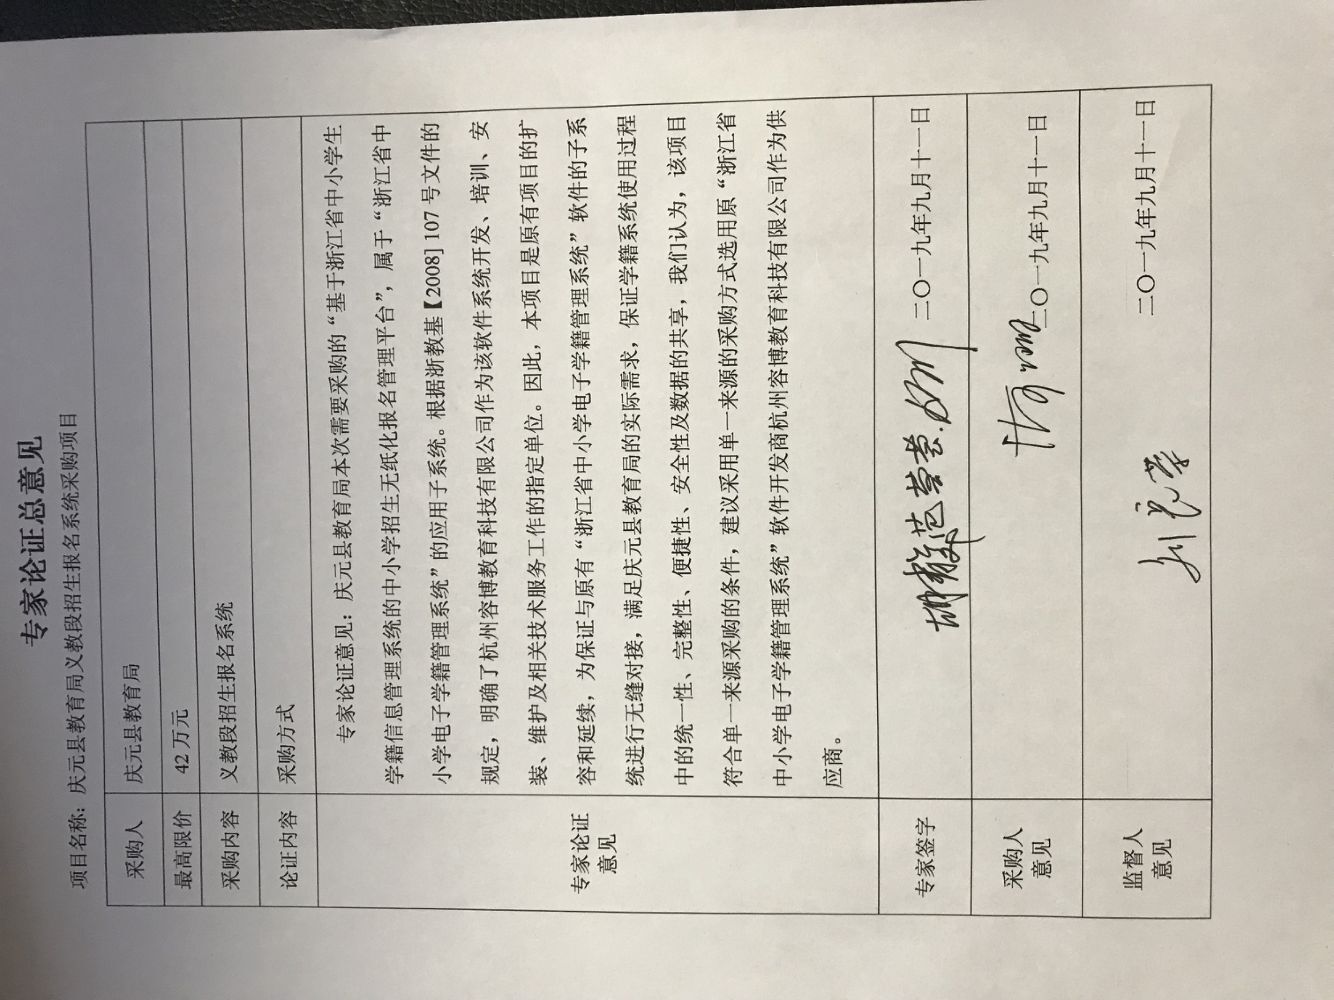 专家论证总意见
项目名称：庆元县教育局义教段招生报名系统采购项目
采购人 庆元县教育局
最高限价 42 万元
采购内容 义教段招生报名系统
论证内容 采购方式
专家论证意见：庆元县教育局本次需要采购的“基于浙江省中小学生
学籍信息管理系统的中小学招生无纸化报名管理平台”，属于“浙江省中
小学电子学籍管理系统”的应用子系统。根据浙教基【2008] 107 号文件的
规定，明确了杭州容博教育科技有限公司作为该软件系统开发、培训、安
装、维护及相关技术服务工作的指定单位。因此，本项目是原有项目的扩
容和延续，为保证与原有“浙江省中小学电子学籍管理系统”软件的子系
统进行无缝对接，满足庆元县教育局的实际需求，保证学籍系统使用过程
中的统一性、完整性、便捷性、安全性及数据的共享，我们认为，该项目
符合单一来源采购的条件，建议采用单一来源的采购方式选用原“浙江省
中小学电子学籍管理系统”软件开发商杭州容博教育科技有限公司作为供
应商。
专家论证
意见
专家签字 二〇一九年九月十一日
采购人
意见
二〇一九年九月十一日
监督人
意见
二〇一九年九月十一日